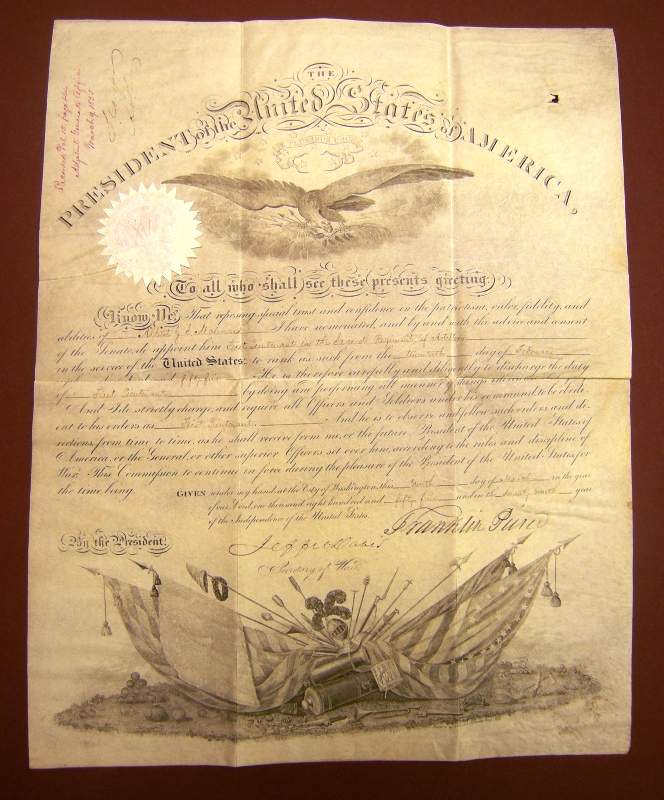 THE
PRESIDENT of the United States of AMERICA,
E PLURIBUS UNUM
Adjutant General's Office
March 9, 1855
To all who shall see these presents greeting:
Know Ye, That reposing special trust and confidence in the patriotism, valor, fidelity, and
abilities of I have nominated, and by and with the advice and consent
of the Senate, do appoint him First Lieutenant in the Second Regiment of Artillery
in the service of the United States: to rank as such from the day of February
eighteen hundred and fifty five. He is therefore carefully and diligently to discharge the duty
of First Lieutenant by doing and performing all manner of things thereunto belonging.
And I do strictly charge, and require all Officers and Soldiers under his command to be obedi-
ent to his orders as First Lieutenant. And he is to observe and follow such orders, and di-
rections, from time to time, as he shall receive from me, or the future President of the United States of
America, or the General, or other superior Officers set over him, according to the rules and discipline of
War. This Commission to continue in force during the pleasure of the President of the United States for
the time being.
GIVEN under my hand, at the City of Washington, this ninth day of March in the year
of our Lord, one thousand eight hundred and fifty five and in the seventy ninth year
of the Independence of the United States.
By the President:
Franklin Pierce
Jeffer Davis
Secretary of War.